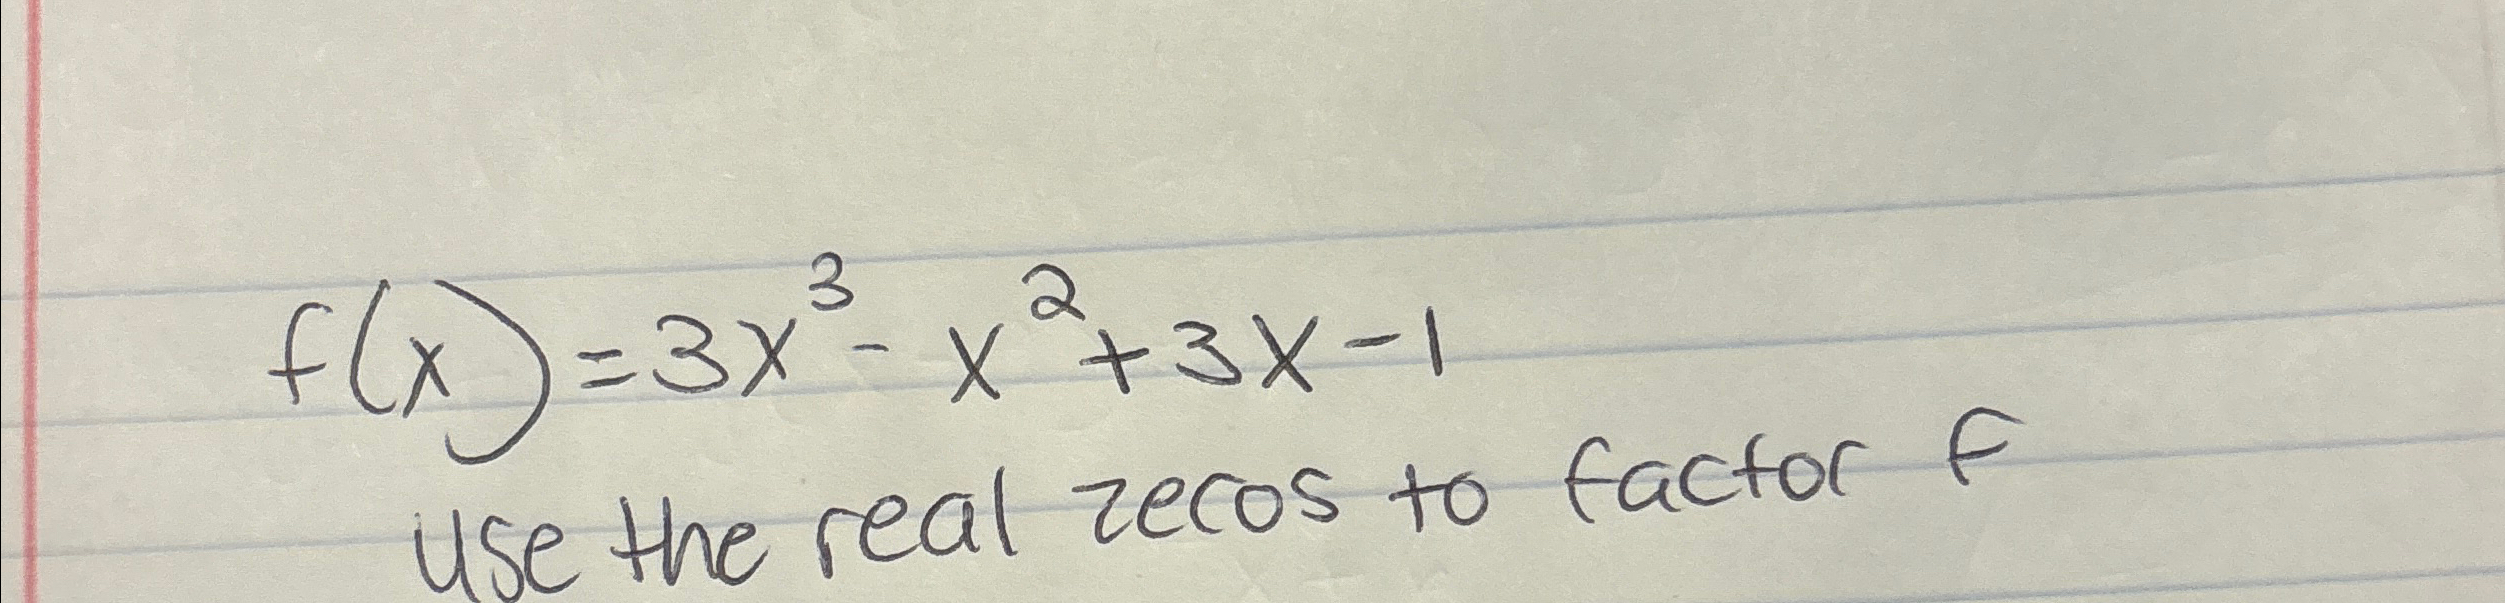 f(x)=3x³-x²+3x-1
use the real zeros to factor f